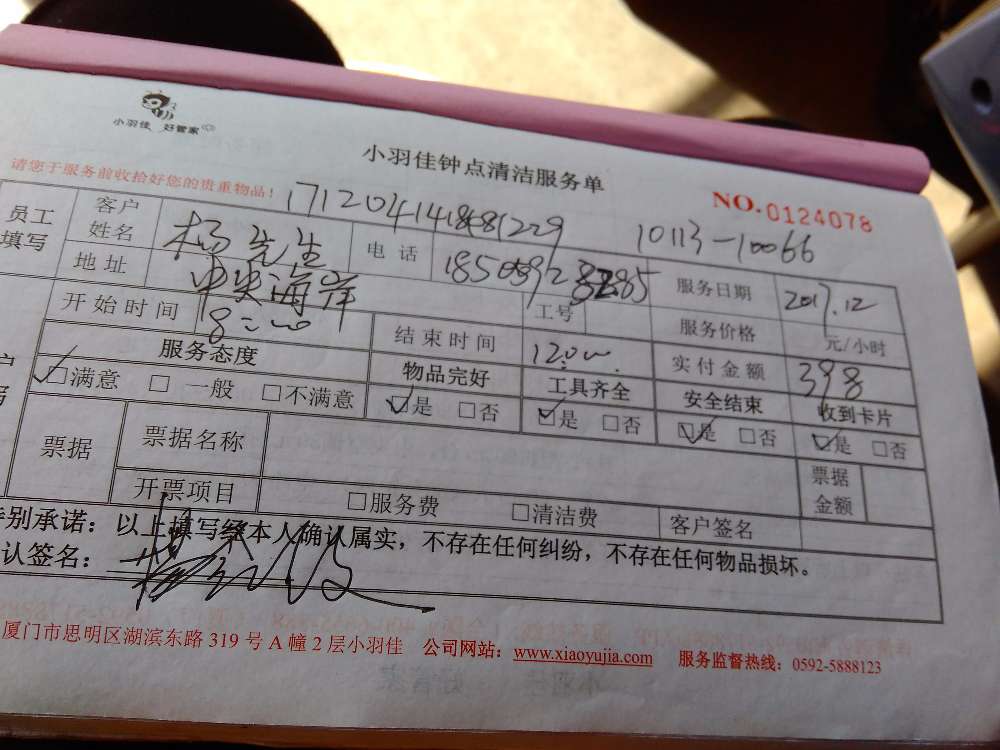 小羽佳 好管家
小羽佳钟点清洁服务单
请您于服务前收拾好您的贵重物品！
NO.0124078
10113-10066
员工填写 客户姓名 杨先生 电话 服务日期 2017.12
地址 中央海岸 工号 服务价格 元/小时
开始时间 8:00 结束时间 12:00 实付金额 398
服务态度 物品完好 工具齐全 安全结束 收到卡片
☑满意 □一般 □不满意 ☑是 □否 ☑是 □否 ☑是 □否 ☑是 □否
票据 票据名称 票据金额
开票项目 □服务费 □清洁费 客户签名
别承诺：以上填写经本人确认属实，不存在任何纠纷，不存在任何物品损坏。
认签名：
厦门市思明区湖滨东路319号A幢2层小羽佳 公司网站：www.xiaoyujia.com 服务监督热线：0592-5888123